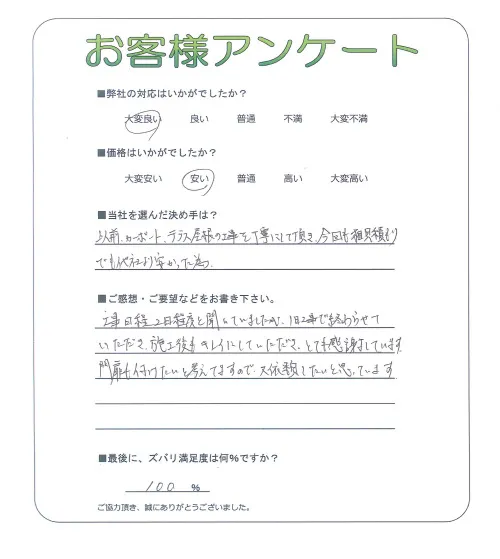 お客様アンケート
■弊社の対応はいかがでしたか?
大変良い 良い 普通 不満 大変不満
■価格はいかがでしたか?
大変安い 安い 普通 高い 大変高い
■当社を選んだ決め手は?
以前、カーポート、テラス屋根の工事を丁寧にして頂き、今回も相見積もり
でも他社より安かった為。
■ご感想・ご要望などをお書き下さい。
工事日程2日程度と聞いていましたが、1日工事で終わらせて
いただき、施工後もキレイにしていただき、とても感謝しています
門扉も付けたいと考えてますので、又依頼したいと思っています
■最後に、ズバリ満足度は何%ですか?
100 %
ご協力頂き、誠にありがとうございました。